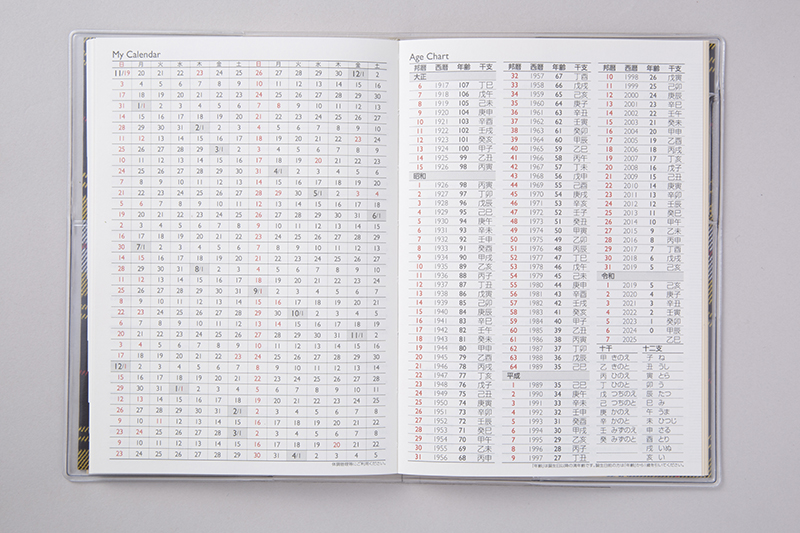 My Calendar
日 月 火 水 木 金 土 日 月 火 水 木 金 土
11/19 20 21 22 23 24 25 26 27 28 29 30 12/1 2
3 4 5 6 7 8 9 10 11 12 13 14 15 16
17 18 19 20 21 22 23 24 25 26 27 28 29 30
31 1/1 2 3 4 5 6 7 8 9 10 11 12 13
14 15 16 17 18 19 20 21 22 23 24 25 26 27
28 29 30 31 2/1 2 3 4 5 6 7 8 9 10
11 12 13 14 15 16 17 18 19 20 21 22 23 24
25 26 27 28 29 3/1 2 3 4 5 6 7 8 9
10 11 12 13 14 15 16 17 18 19 20 21 22 23
24 25 26 27 28 29 30 31 4/1 2 3 4 5 6
7 8 9 10 11 12 13 14 15 16 17 18 19 20
21 22 23 24 25 26 27 28 29 30 5/1 2 3 4
5 6 7 8 9 10 11 12 13 14 15 16 17 18
19 20 21 22 23 24 25 26 27 28 29 30 31 6/1
2 3 4 5 6 7 8 9 10 11 12 13 14 15
16 17 18 19 20 21 22 23 24 25 26 27 28 29
30 7/1 2 3 4 5 6 7 8 9 10 11 12 13
14 15 16 17 18 19 20 21 22 23 24 25 26 27
28 29 30 31 8/1 2 3 4 5 6 7 8 9 10
11 12 13 14 15 16 17 18 19 20 21 22 23 24
25 26 27 28 29 30 31 9/1 2 3 4 5 6 7
8 9 10 11 12 13 14 15 16 17 18 19 20 21
22 23 24 25 26 27 28 29 30 10/1 2 3 4 5
6 7 8 9 10 11 12 13 14 15 16 17 18 19
20 21 22 23 24 25 26 27 28 29 30 31 11/1 2
3 4 5 6 7 8 9 10 11 12 13 14 15 16
17 18 19 20 21 22 23 24 25 26 27 28 29 30
12/1 2 3 4 5 6 7 8 9 10 11 12 13 14
15 16 17 18 19 20 21 22 23 24 25 26 27 28
29 30 31 1/1 2 3 4 5 6 7 8 9 10 11
12 13 14 15 16 17 18 19 20 21 22 23 24 25
26 27 28 29 30 31 2/1 2 3 4 5 6 7 8
9 10 11 12 13 14 15 16 17 18 19 20 21 22
23 24 25 26 27 28 3/1 2 3 4 5 6 7 8
9 10 11 12 13 14 15 16 17 18 19 20 21 22
23 24 25 26 27 28 29 30 31 4/1 2 3 4 5
Age Chart
邦暦 西暦 年齢 干支
大正
6 1917 107 丁巳
7 1918 106 戊午
8 1919 105 己未
9 1920 104 庚申
10 1921 103 辛酉
11 1922 102 壬戌
12 1923 101 癸亥
13 1924 100 甲子
14 1925 99 乙丑
15 1926 98 丙寅
昭和
1 1926 98 丙寅
2 1927 97 丁卯
3 1928 96 戊辰
4 1929 95 己巳
5 1930 94 庚午
6 1931 93 辛未
7 1932 92 壬申
8 1933 91 癸酉
9 1934 90 甲戌
10 1935 89 乙亥
11 1936 88 丙子
12 1937 87 丁丑
13 1938 86 戊寅
14 1939 85 己卯
15 1940 84 庚辰
16 1941 83 辛巳
17 1942 82 壬午
18 1943 81 癸未
19 1944 80 甲申
20 1945 79 乙酉
21 1946 78 丙戌
22 1947 77 丁亥
23 1948 76 戊子
24 1949 75 己丑
25 1950 74 庚寅
26 1951 73 辛卯
27 1952 72 壬辰
28 1953 71 癸巳
29 1954 70 甲午
30 1955 69 乙未
31 1956 68 丙申
邦暦 西暦 年齢 干支
32 1957 67 丁酉
33 1958 66 戊戌
34 1959 65 己亥
35 1960 64 庚子
36 1961 63 辛丑
37 1962 62 壬寅
38 1963 61 癸卯
39 1964 60 甲辰
40 1965 59 乙巳
41 1966 58 丙午
42 1967 57 丁未
43 1968 56 戊申
44 1969 55 己酉
45 1970 54 庚戌
46 1971 53 辛亥
47 1972 52 壬子
48 1973 51 癸丑
49 1974 50 甲寅
50 1975 49 乙卯
51 1976 48 丙辰
52 1977 47 丁巳
53 1978 46 戊午
54 1979 45 己未
55 1980 44 庚申
56 1981 43 辛酉
57 1982 42 壬戌
58 1983 41 癸亥
59 1984 40 甲子
60 1985 39 乙丑
61 1986 38 丙寅
62 1987 37 丁卯
63 1988 36 戊辰
64 1989 35 己巳
平成
1 1989 35 己巳
2 1990 34 庚午
3 1991 33 辛未
4 1992 32 壬申
5 1993 31 癸酉
6 1994 30 甲戌
7 1995 29 乙亥
8 1996 28 丙子
9 1997 27 丁丑
邦暦 西暦 年齢 干支
10 1998 26 戊寅
11 1999 25 己卯
12 2000 24 庚辰
13 2001 23 辛巳
14 2002 22 壬午
15 2003 21 癸未
16 2004 20 甲申
17 2005 19 乙酉
18 2006 18 丙戌
19 2007 17 丁亥
20 2008 16 戊子
21 2009 15 己丑
22 2010 14 庚寅
23 2011 13 辛卯
24 2012 12 壬辰
25 2013 11 癸巳
26 2014 10 甲午
27 2015 9 乙未
28 2016 8 丙申
29 2017 7 丁酉
30 2018 6 戊戌
31 2019 5 己亥
令和
1 2019 5 己亥
2 2020 4 庚子
3 2021 3 辛丑
4 2022 2 壬寅
5 2023 1 癸卯
6 2024 0 甲辰
7 2025 乙巳
十干 十二支
甲 きのえ 子 ね
乙 きのと 丑 うし
丙 ひのえ 寅 とら
丁 ひのと 卯 う
戊 つちのえ 辰 たつ
己 つちのと 巳 み
庚 かのえ 午 うま
辛 かのと 未 ひつじ
壬 みずのえ 申 さる
癸 みずのと 酉 とり
戌 いぬ
亥 い